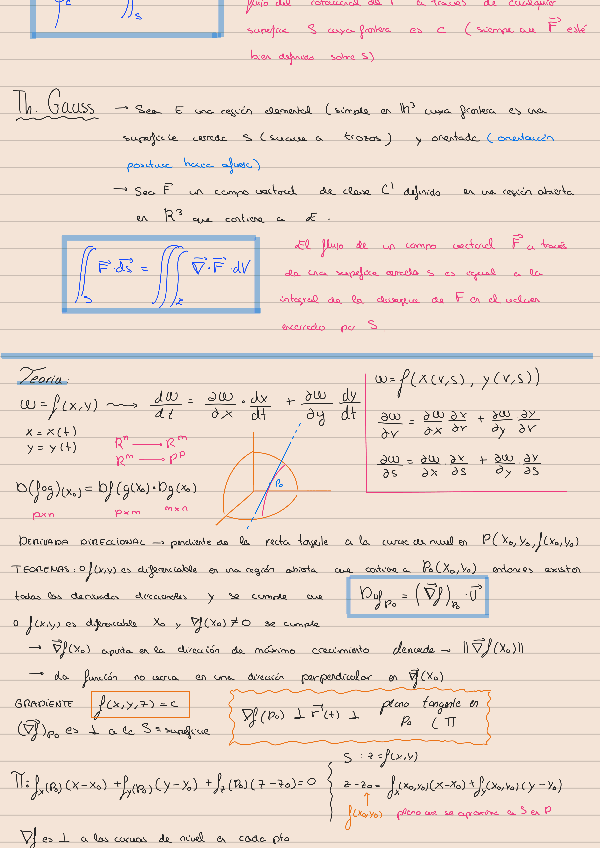 flujo del rotacional de F a través de cualquier
∮c ∬s superficie S cuya frontera es C (siempre que F⃗ esté
bien definido sobre S)
Th. Gauss → Sea E una región elemental (simple en R³ cuya frontera es una
superficie cerrada S (suave a trozos) y orientada (orientación
positiva hacia afuera)
→ Sea F un campo vectorial de clase C¹ definido en una región abierta
en R³ que contiene a E.
∬s F⃗·ds⃗ = ∭E ∇⃗·F⃗·dV
El flujo de un campo vectorial F⃗ a través
de una superficie cerrada S es igual a la
integral de la divergencia de F en el volumen
encerrado por S
Teoria:
w=f(x,y) ⟿ dw/dt = ∂w/∂x · dx/dt + ∂w/∂y dy/dt
x=x(t)
y=y(t)
Rⁿ → Rᵐ
Rᵐ → Pᵖ
w=f(x(r,s), y(r,s))
∂w/∂r = ∂w/∂x ∂x/∂r + ∂w/∂y ∂y/∂r
∂w/∂s = ∂w/∂x ∂x/∂s + ∂w/∂y ∂y/∂s
D(fog)(x₀) = Df(g(x₀)·Dg(x₀)
pxn pxm mxn
P₀
DERIVADA DIRECCIONAL → pendiente de la recta tangente a la curva de nivel en P(x₀,y₀,f(x₀,y₀)
TEOREMAS: o f(x,y) es diferenciable en una región abierta que contiene a P₀(x₀,y₀) entonces existen
todas las derivadas direccionales y se cumple que Duf P₀ = (∇⃗f)P₀ · U⃗
o f(x,y) es diferenciable x₀ y ∇f(x₀)≠0 se cumple
→ ∇⃗f(x₀) apunta en la dirección de máximo crecimiento → ||∇⃗f(x₀)||
→ La función no varía en una dirección perpendicular en ∇⃗f(x₀)
GRADIENTE f(x,y,z)=c
(∇⃗f)P₀ es ⊥ a la S = superficie
∇f(P₀) ⊥ r⃗'(t) ⊥ plano tangente en
P₀ (Π
Π: fx(P₀)(x-x₀) + fy(P₀)(y-y₀) + fz(P₀)(z-z₀)=0
S: z=f(x,y)
z-z₀ = fx(x₀,y₀)(x-x₀)+fy(x₀,y₀)(y-y₀)
f(x₀,y₀) plano que se aproxima a S en P
∇f es ⊥ a las curvas de nivel en cada pto